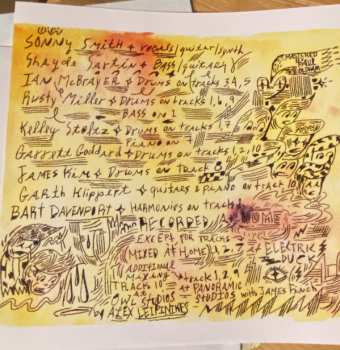 SONNY SMITH & vocals/guitar/synth
Shayde Sartin & BASS/guitars
IAN McBRAYER & Drums on tracks 3, 4, 5
Rusty Miller & Drums on tracks 1, 6, 9
BASS ON 1
Kelley Stoltz & Drums on tracks 1, 7
PIANO ON
Garrett Goddard & Drums on tracks 1, 2, 10
James Kim & Drums on track 8
GARth Klippert & guitars & PIANO on track 10
BART DAVENPORT & HARMONIES on track
RECORDED AT HOME
EXCEPT FOR TRACKS
MIXED AT HOME
AT ELECTRIC
DUCK
ADDITIONAL
MIXING
tracks 1, 2, 9
TRACKS 10
AT PANORAMIC
AT
OWL STUDIOS
STUDIOS with JAMES
by ALEX